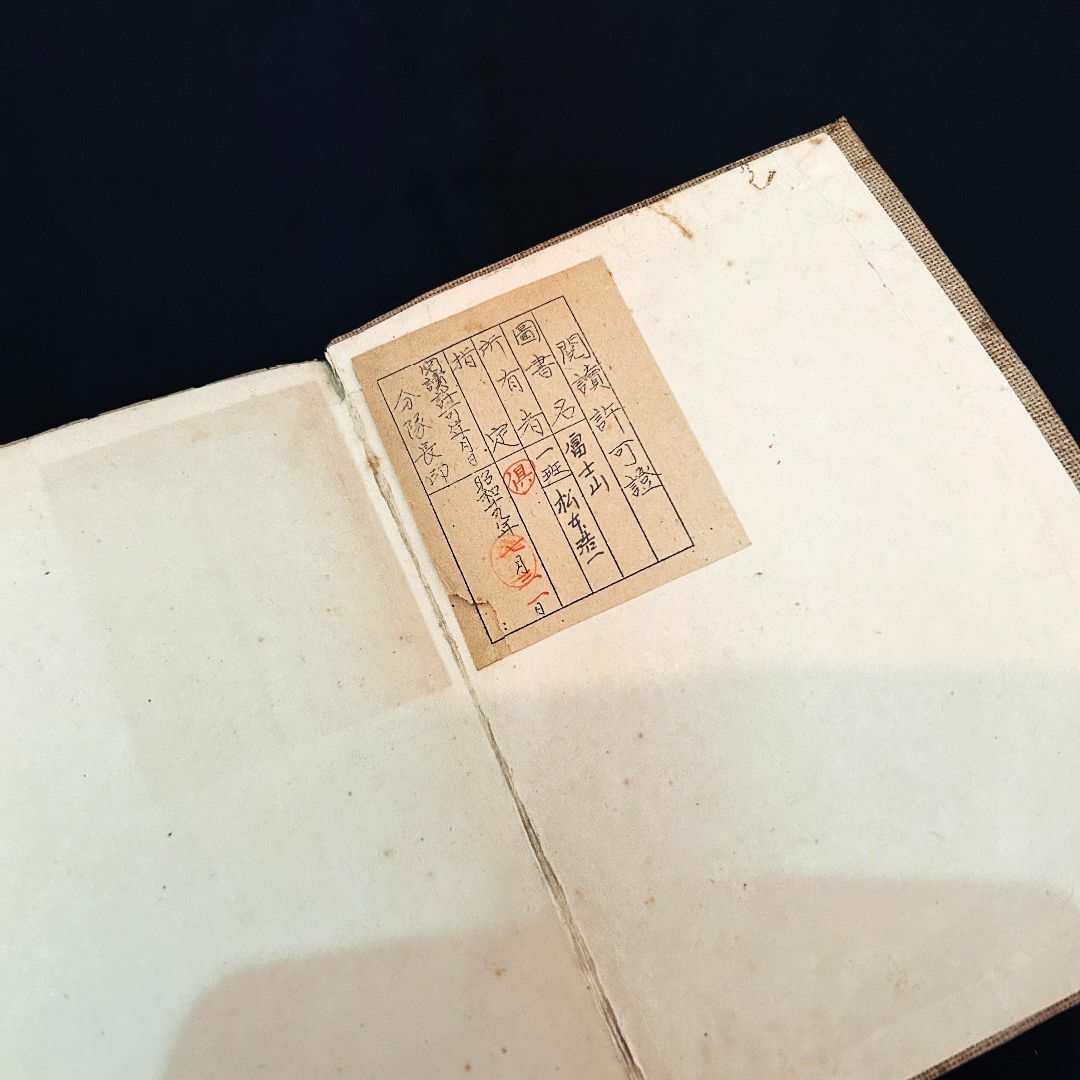 閲讀許可證
圖書名 富士山
所有者 一班 松本浩一
指定 俱
閲讀許可年月日 昭和十九年七月三一日
分隊長印